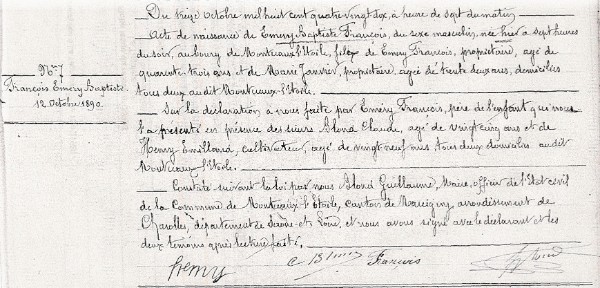 N° 7
François Emery Baptiste
12 Octobre 1890.
Du treize Octobre mil huit cent quatre vingt dix, à heure de sept du matin
Acte de naissance de Emery Baptiste François, du sexe masculin, née hier a sept heures
du soir, au bourg de Montceaux l'Etoile, fils de Emery François, propriétaire, agé de
quarante trois ans et de Marie Janvier, propriétaire, agée de trente deux ans, domiciliés
tous deux audit Montceaux-l'Etoile.
Sur la déclaration a nous faite par Emery François, père de l'enfant qui nous
l'a présenté en présence des sieurs Blond Claude, agé de vingt cinq ans et de
Henry Emilland, cultivateur, agé de vingt neuf ans tous deux domiciliés audit
Montceaux-l'Etoile.
Constaté suivant la loi par nous Blond Guillaume, Maire, officier de l'Etat civil
de la Commune de Montceaux-l'Etoile, canton de Marcigny, arrondissement de
Charolles, département de Saône-et-Loire, et nous avons signé avec le déclarant et les
deux témoins après lecture faite.
henry C Blond François